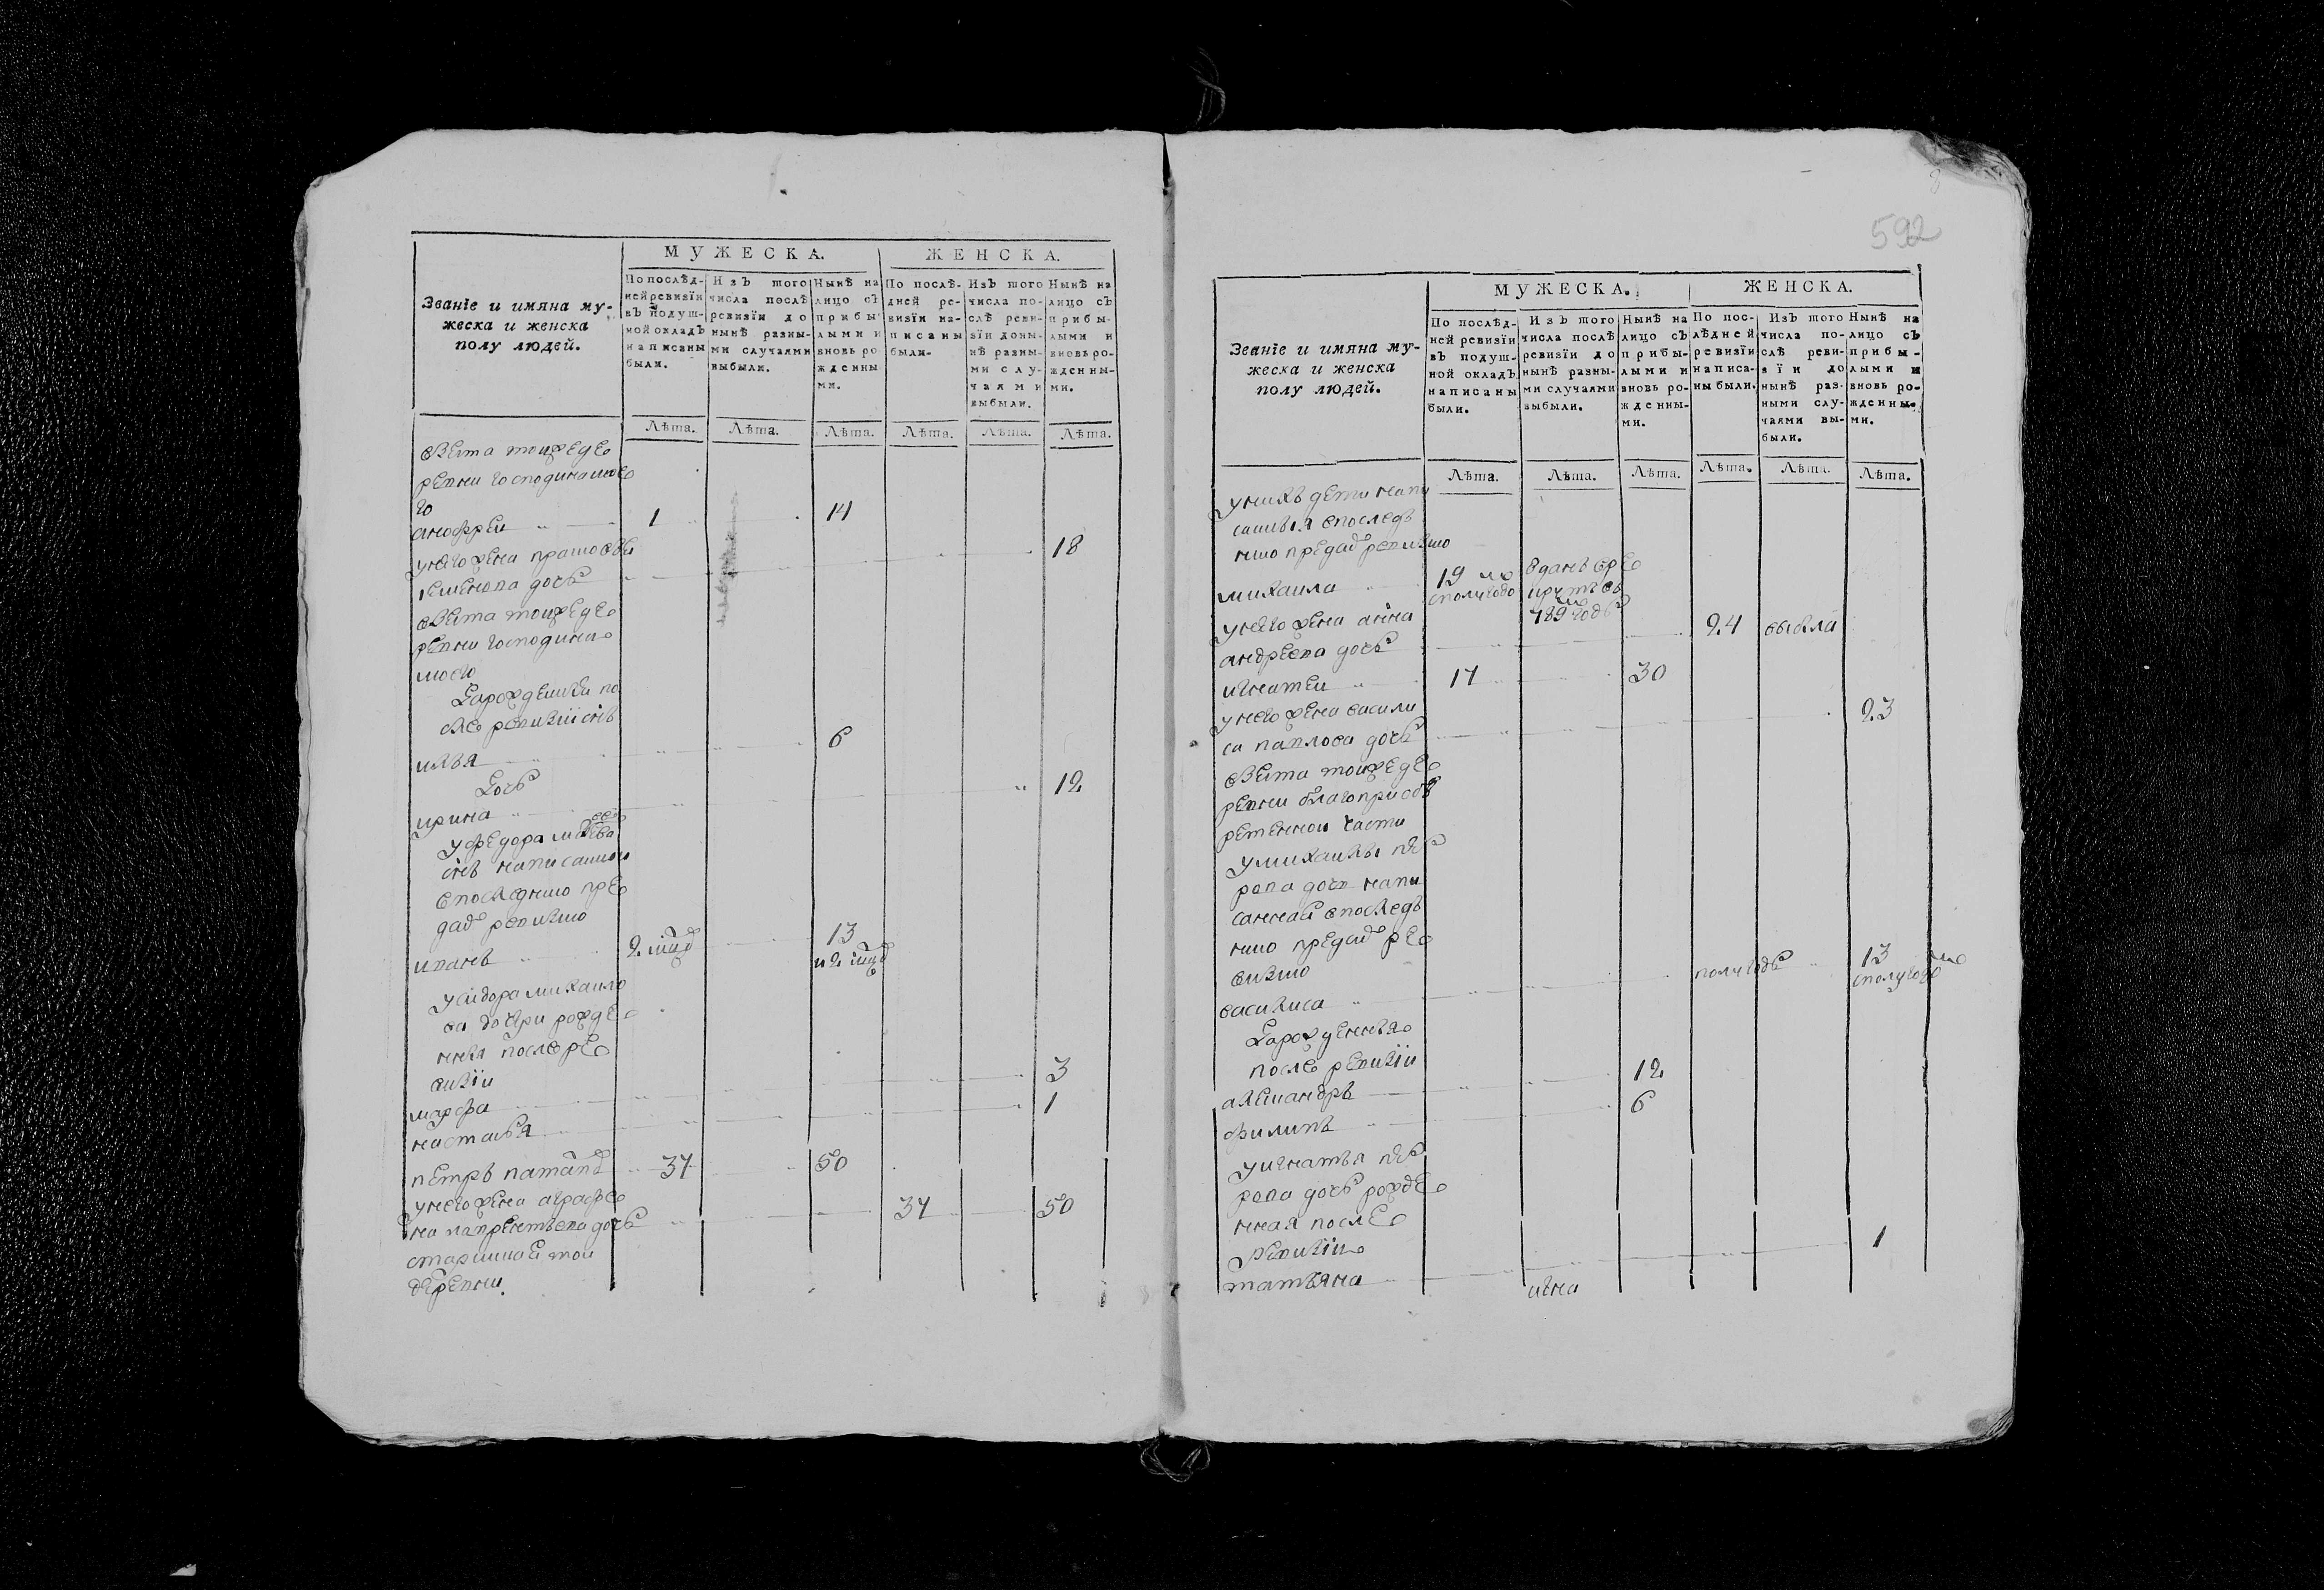 МУЖЕСКА.
ЖЕНСКА.
Званіе и имяна му-
жеска и женска
полу людей.
По послѣд-
ней ревизїи
въ подуш-
ной окладъ
написаны
были.
Изъ того
числа послѣ
ревизїи до
нынѣ разны-
ми случаями
выбыли.
Нынѣ на
лицо съ
прибы-
лыми и
вновь ро
жденны
ми.
По послѣ-
дней ре-
визїи на-
писаны
были.
Изъ того
числа по-
слѣ реви-
зїи доны-
нѣ разны-
ми слу-
чаями
выбыли.
Нынѣ на
лицо съ
прибы-
лыми и
вновь ро-
жденны-
ми.
Лѣта. Лѣта. Лѣта. Лѣта. Лѣта. Лѣта.
взята тойже де
ревни господина мое
го
анофреи 1 14
унего жена
семенова дочь 18
взята тойже де
ревни господина
моего
Зарожденныи по
сле ревизїи снъ
илья 6
Дочь
ирина 12
уфедора
снъ написанои
впоследнюю пре
дъ ревизию
иванъ 2 мцд 13
и 2 мцд
усидора михаило
ва дочери рожде
нныя после ре
визїи
марфа 3
настасья 1
петръ 37 50
унего жена аграфе
на лаврентьева дочь 37 50
стариннай той
деревни
592
МУЖЕСКА.
ЖЕНСКА.
Званіе и имяна му-
жеска и женска
полу людей.
По послѣд-
ней ревизїи
въ подуш-
ной окладъ
написаны
были.
Изъ того
числа послѣ
ревизїи до
нынѣ разны-
ми случаями
выбыли.
Нынѣ на
лицо съ
прибы-
лыми и
вновь ро-
жденны-
ми.
По пос-
лѣдней
ревизїи
написа-
ны были.
Изъ того
числа по-
слѣ реви-
зїи до
нынѣ раз-
ными слу-
чаями вы-
были.
Нынѣ на
лицо съ
прибы-
лыми и
вновь ро-
жденны-
ми.
Лѣта. Лѣта. Лѣта. Лѣта. Лѣта. Лѣта.
унихъ дети напи
санныя впоследъ
нюю предъ ревизию
михаила 19 сполугодо отданъ вре
круты въ
789 годе
унего жена анна
андреева дочь 24 выбыла
игнатеи 17 30
унего жена васили
са павлова дочь 23
взята тойже де
ревни благоприоб
ретенной части
умихаилы
рвова дочь напи
санная впоследъ
нюю предъ ре
визию
василиса полугоде 13
сполугодо
Зарожденныя
после ревизїи
александръ 12
филипъ 6
уигнатья
рвова дочь рожде
нная после
ревизїи
татьяна 1
игна